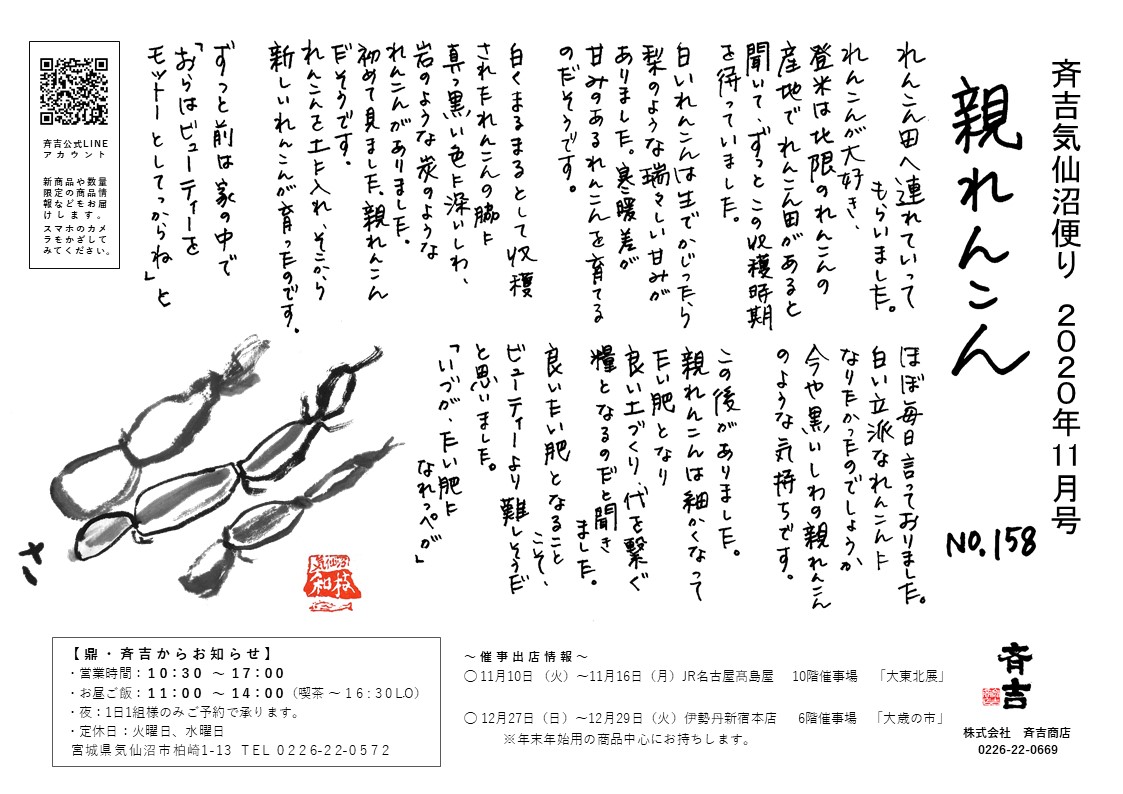 斉吉気仙沼便り 2020年11月号
親れんこん
NO.158
れんこん田へ連れていって
もらいました。
れんこんが大好き、
登米は北限のれんこんの
産地で れんこん田があると
聞いて、ずっと この収穫時期
を待っていました。
白いれんこんは生でかじったら
梨のような瑞々しい甘みが
ありました。寒暖差が
甘みのあるれんこんを育てる
のだそうです。
白くまるまるとして収穫
されたれんこんの脇に
真っ黒い色に深いしわ、
岩のような炭のような
れんこんがありました。
初めて見ました、親れんこん
だそうです。
れんこんを土に入れ、そこから
新しいれんこんが育ったのです。
ずっと前は 家の中で
「おらはビューティーを
モットーとしてっからね」と
ほぼ毎日言っておりました。
白い立派なれんこんに
なりたかったのでしょうか
今や黒いしわの親れんこん
のような気持ちです。
この後がありました。
親れんこんは細かくなって
たい肥となり
良い土づくり、代を繋ぐ
糧となるのだと聞き
ました。
良いたい肥となること
こそ、
ビューティーより難しそうだ
と思いました。
「いづが、たい肥に
なれっぺが」
さ
気仙沼
和枝
斉吉公式LINE
アカウント
新商品や数量
限定の商品情
報などをお届
けします。
スマホのカメ
ラをかざして
みてください。
【鼎・斉吉からお知らせ】
・営業時間：10:30 ～ 17:00
・お昼ご飯：11:00 ～ 14:00（喫茶 ～16:30L.O）
・夜：1日1組様のみご予約で承ります。
・定休日：火曜日、水曜日
宮城県気仙沼市柏崎1-13 TEL 0226-22-0572
～催事出店情報～
〇11月10日（火）～11月16日（月）JR名古屋髙島屋 10階催事場 「大東北展」
〇12月27日（日）～12月29日（火）伊勢丹新宿本店 6階催事場 「大歳の市」
※年末年始用の商品中心にお持ちします。
斉吉
株式会社 斉吉商店
0226-22-0669